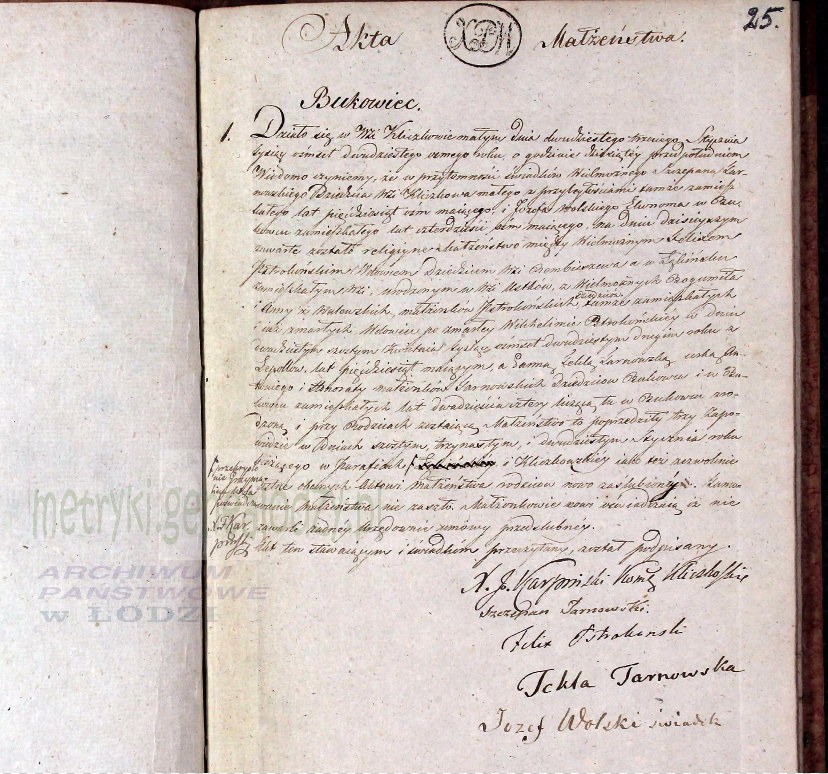 25.
Akta Małżeństwa.
Bukowiec.
1. Działo się w Wsi Kliczkowie małym dnia dwudziestego trzeciego Stycznia
tysiąc ośmset dwudziestego osmego roku, o godzinie dziesiątey przed południem
Wiadomo czyniemy, że w przytomności świadków Wielmożnego Szczepana Tar-
nowskiego Dziedzica Wsi Kliczkowa małego z przyległościami tamże zamiesz-
kałego lat pięćdziesiąt ośm maiącego, i Józefa Wolskiego Ekonoma w
zamieszkałego lat czterdzieści maiącego, na dniu dzisieyszym
zawarte zostało religiyne Małżeństwo między Wielmożnym Felixem
Pstrokońskim Wdowcem Dziedzicem Wsi a w
zamieszkałym Wsi, urodzonym w Wsi Ustków, z Wielmożnych Bogumiła
i Anny z Walewskich, małżonków Pstrokońskich, tamże zamieszkałych
i iuż zmarłych, Wdowcu po zmarłey Wilhelminie Pstrokońskiey w dniu
dwudziestym szóstym Kwietnia tysiąc ośmset dwudziestym roku z
lat pięćdziesiąt maiącym, a Panną Teklą Tarnowską córką An-
toniego i Honoraty małżonków Tarnowskich Dziedziców i w
zamieszkałych lat dwadzieścia cztery liczącą, tu w uro-
dzoną i przy Rodzicach zostaiącą. Małżeństwo to poprzedziły trzy zapo-
wiedzie w dniach szóstym, trzynastym, i dwudziestym Stycznia roku
bieżącego w Parafiach i Kliczkowskiey iako też zezwolenie
ustne obecnych Aktowi małżeństwa rodziców nowo zaślubioney. Tamo-
wanie Małżeństwa nie zaszło. Małżonkowie nowi oświadczaią iż nie
zawarli żadney urzędownie umowy przedślubney.
Akt ten stawaiącym i świadkom przeczytany, został podpisany.
X. J. Karsnicki Kliczkoski
Szczepan Tarnowski.
Felix Pstrokonski
Tekla Tarnowska
Jozef Wolski świadek
metryki.genealodzy.pl
ARCHIWUM
PAŃSTWOWE
w ŁODZI